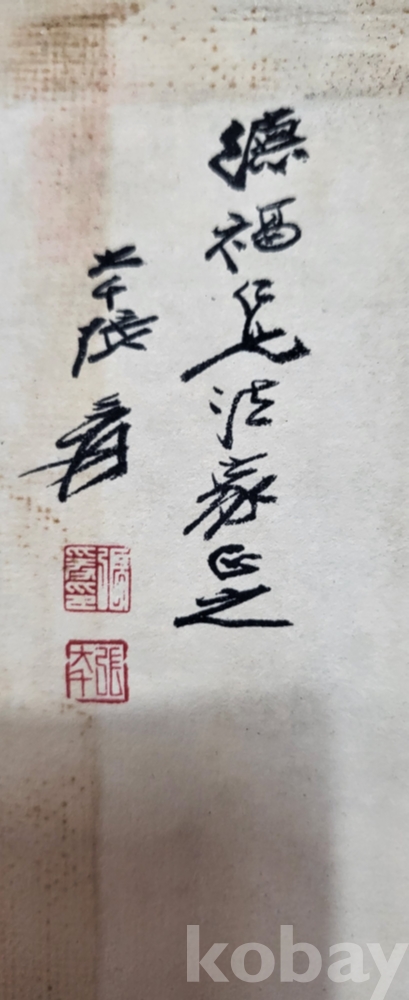 德福仁兄法家正之
大千張爰
張爰之印
張大千
kobay